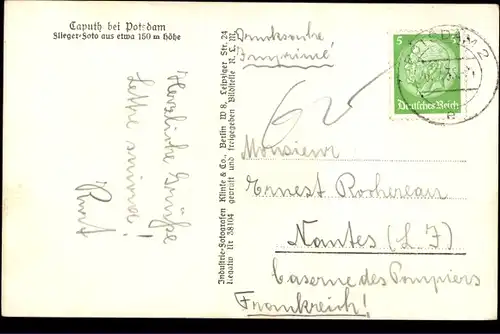 Caputh bei Potsdam
Flieger-Foto aus etwa 150 m Höhe
Herzliche Grüße
Kurt
Industrie-Fotografen Klinke & Co., Berlin W 8, Leipziger Str. 24
Negativ Nr 38104 geprüft und freigegeben Bildstelle R. L. M.
Drucksache
Imprimé
5
Deutsches Reich
POTSDAM 2
Monsieur
Ernest Rochereau
Nantes (L I)
Caserne des Pompiers
Frankreich!